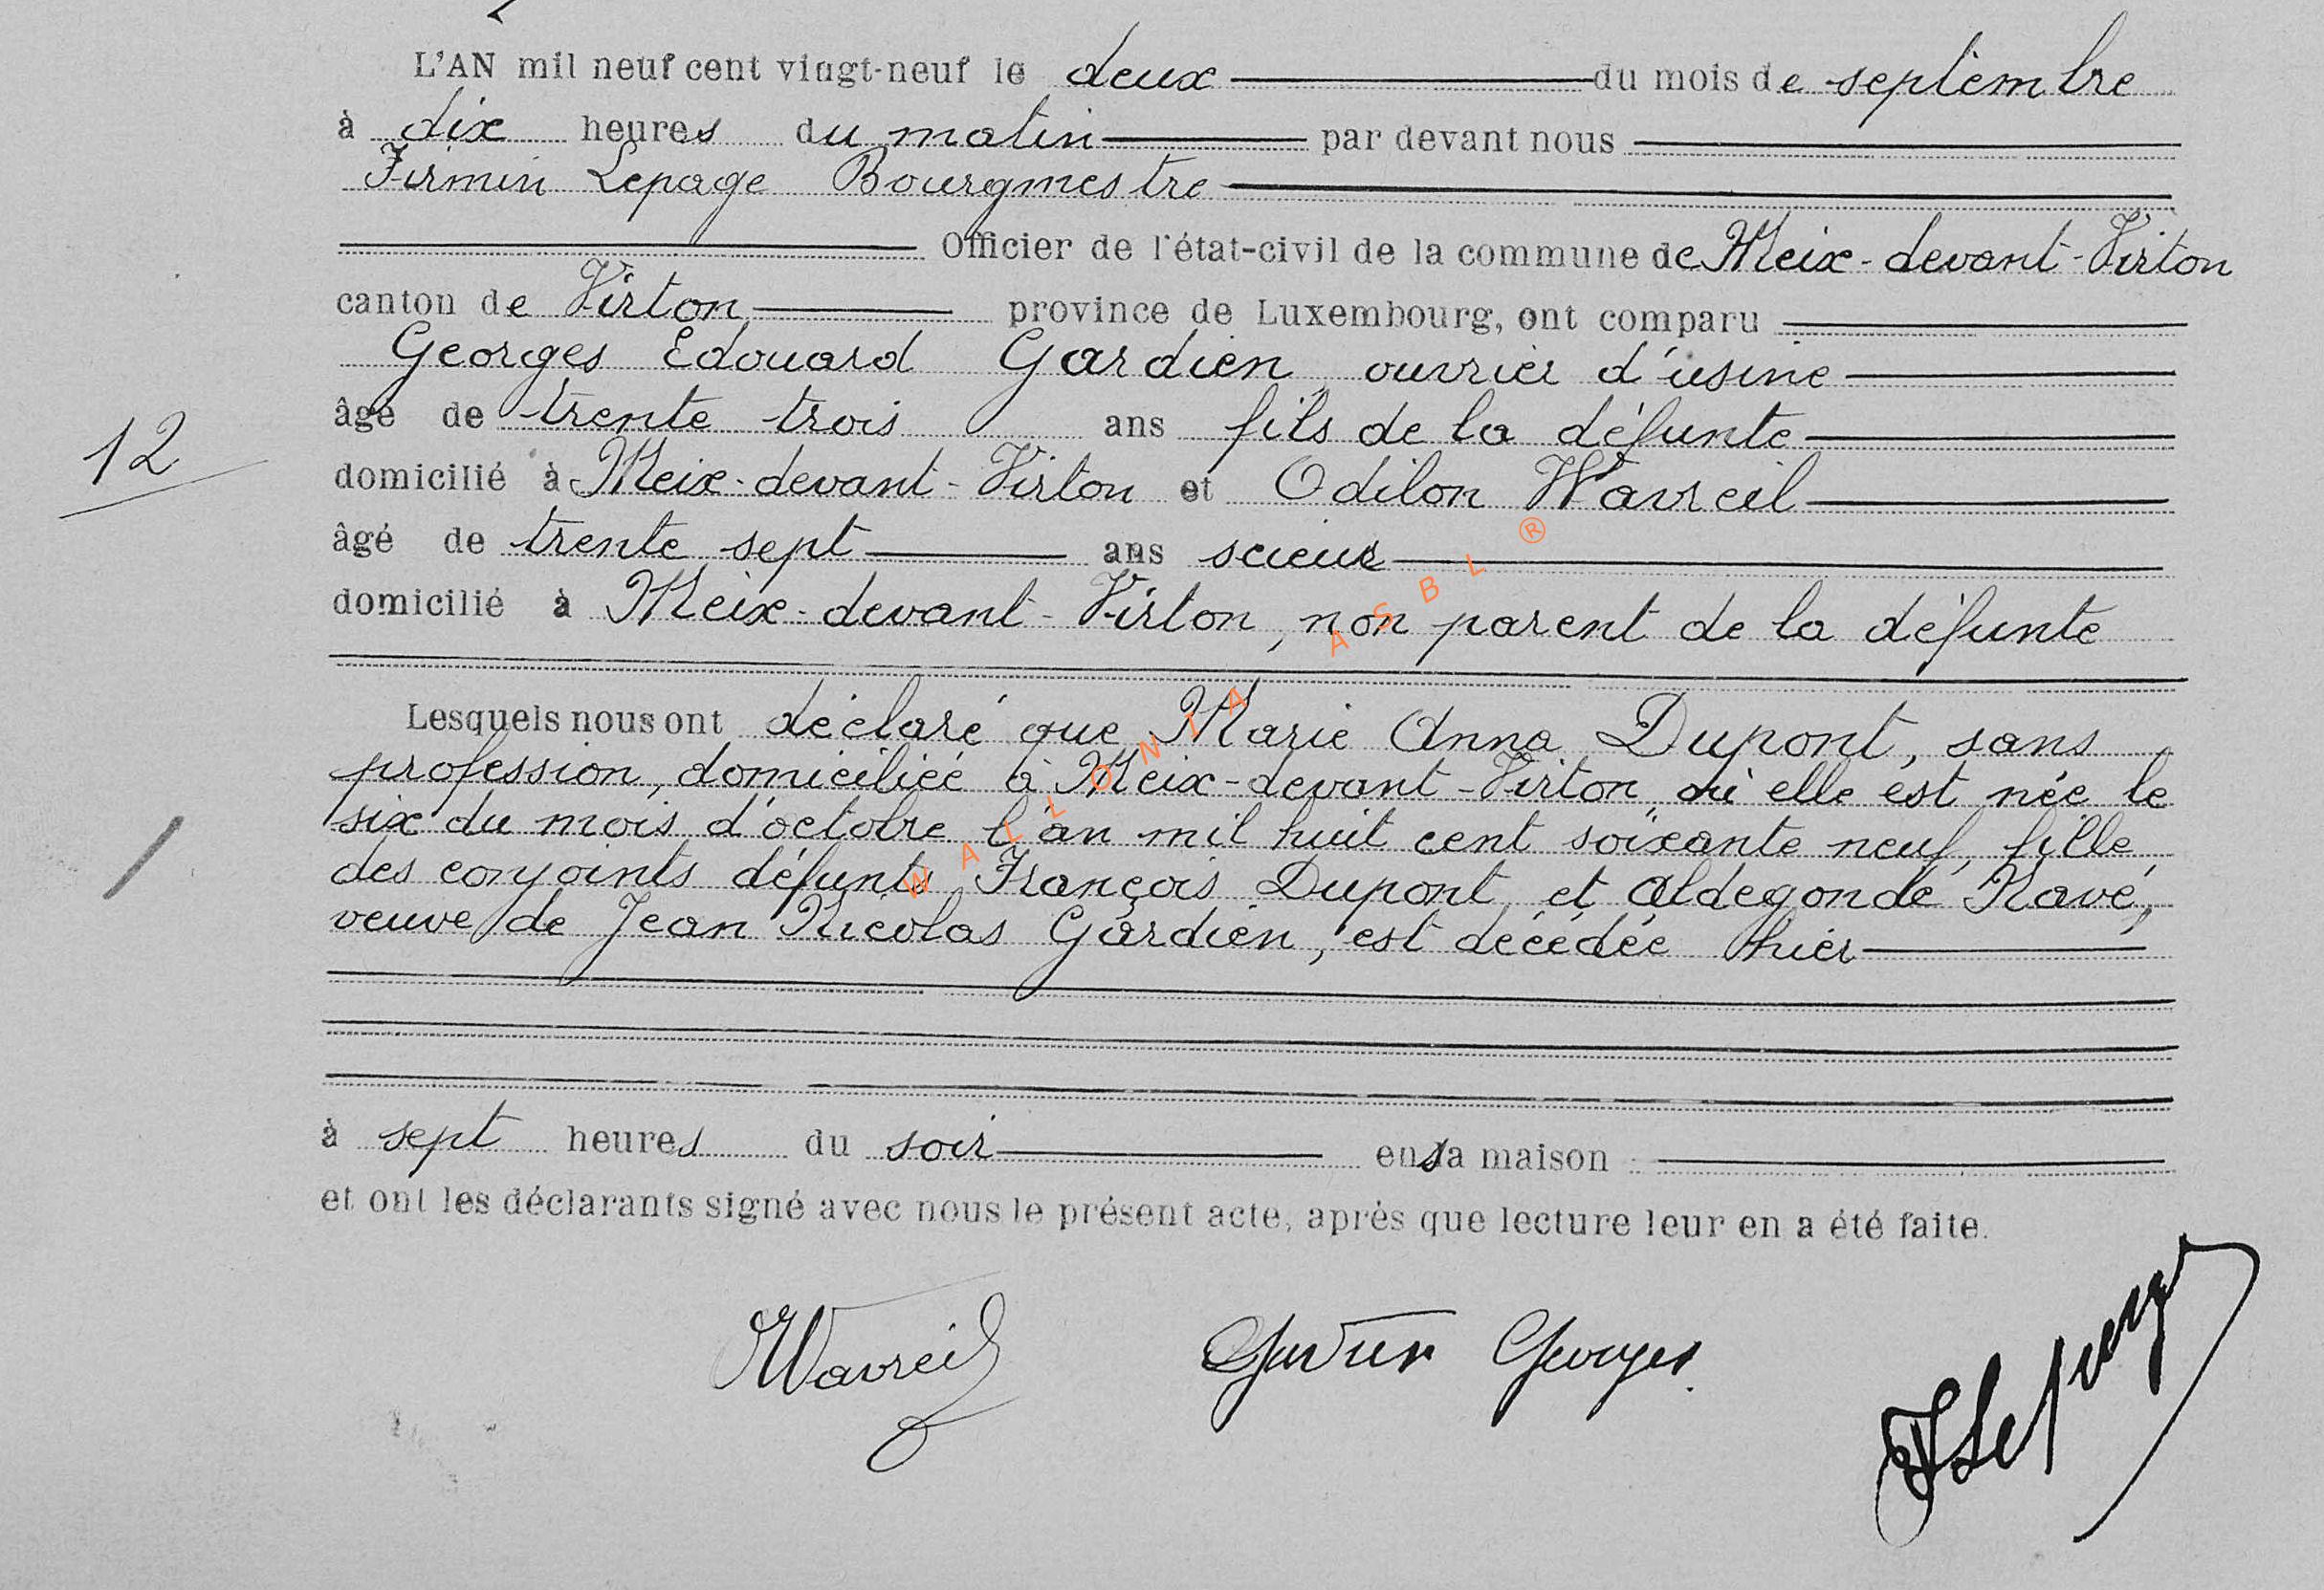 L'AN mil neuf cent vingt-neuf le deux du mois de septembre
à dix heures du matin par devant nous
Firmin Lepage Bourgmestre
Officier de l'état-civil de la commune de Meix-devant-Virton
canton de Virton province de Luxembourg, ont comparu
Georges Edouard Gardien ouvrier d'usine
âgé de trente trois ans fils de la défunte
12
domicilié à Meix-devant-Virton et Odilon Wavreil
âgé de trente sept ans scieur
domicilié à Meix-devant-Virton, non parent de la défunte
Lesquels nous ont déclaré que Marie Anna Dupont, sans
profession, domiciliée à Meix-devant-Virton, où elle est née le
six du mois d'octobre l'an mil huit cent soixante neuf, fille
des conjoints défunts François Dupont et Aldegonde Navé,
veuve de Jean Nicolas Gardien, est décédée hier
à sept heures du soir en sa maison
et ont les déclarants signé avec nous le présent acte, après que lecture leur en a été faite.
Wavreil Gardien Georges FLepage
WALLONIA ASBL ®